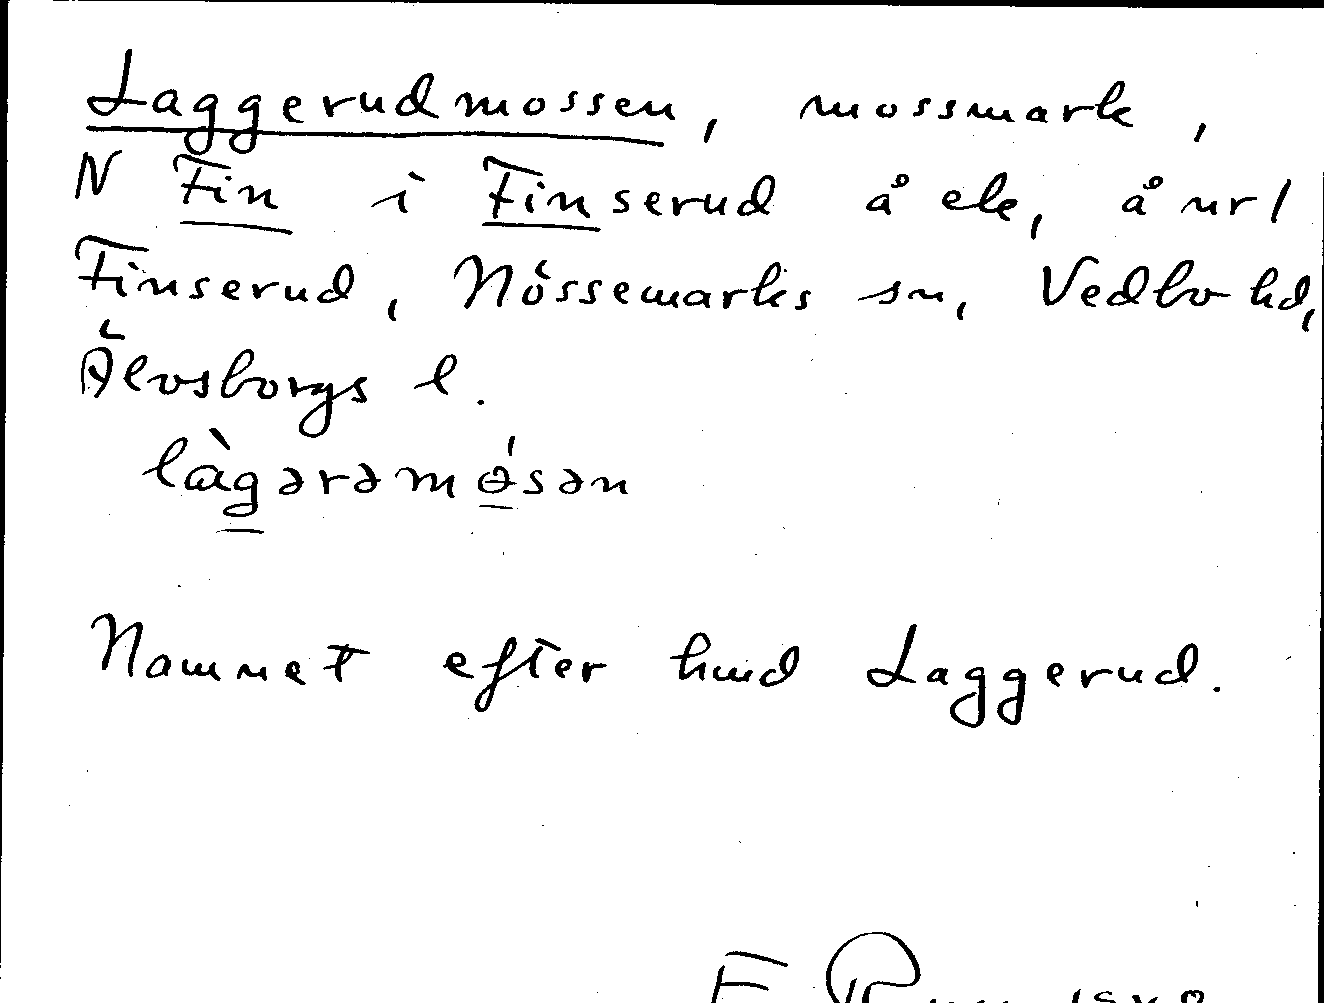 Laggerudmossen, mossmark,
N Fin i Finserud å ek, å url
Finserud, Nössemarks sn, Vedbo hd,
Älvsborgs l.
làgərəmɵ́sən
Namnet efter hmd Laggerud.
F